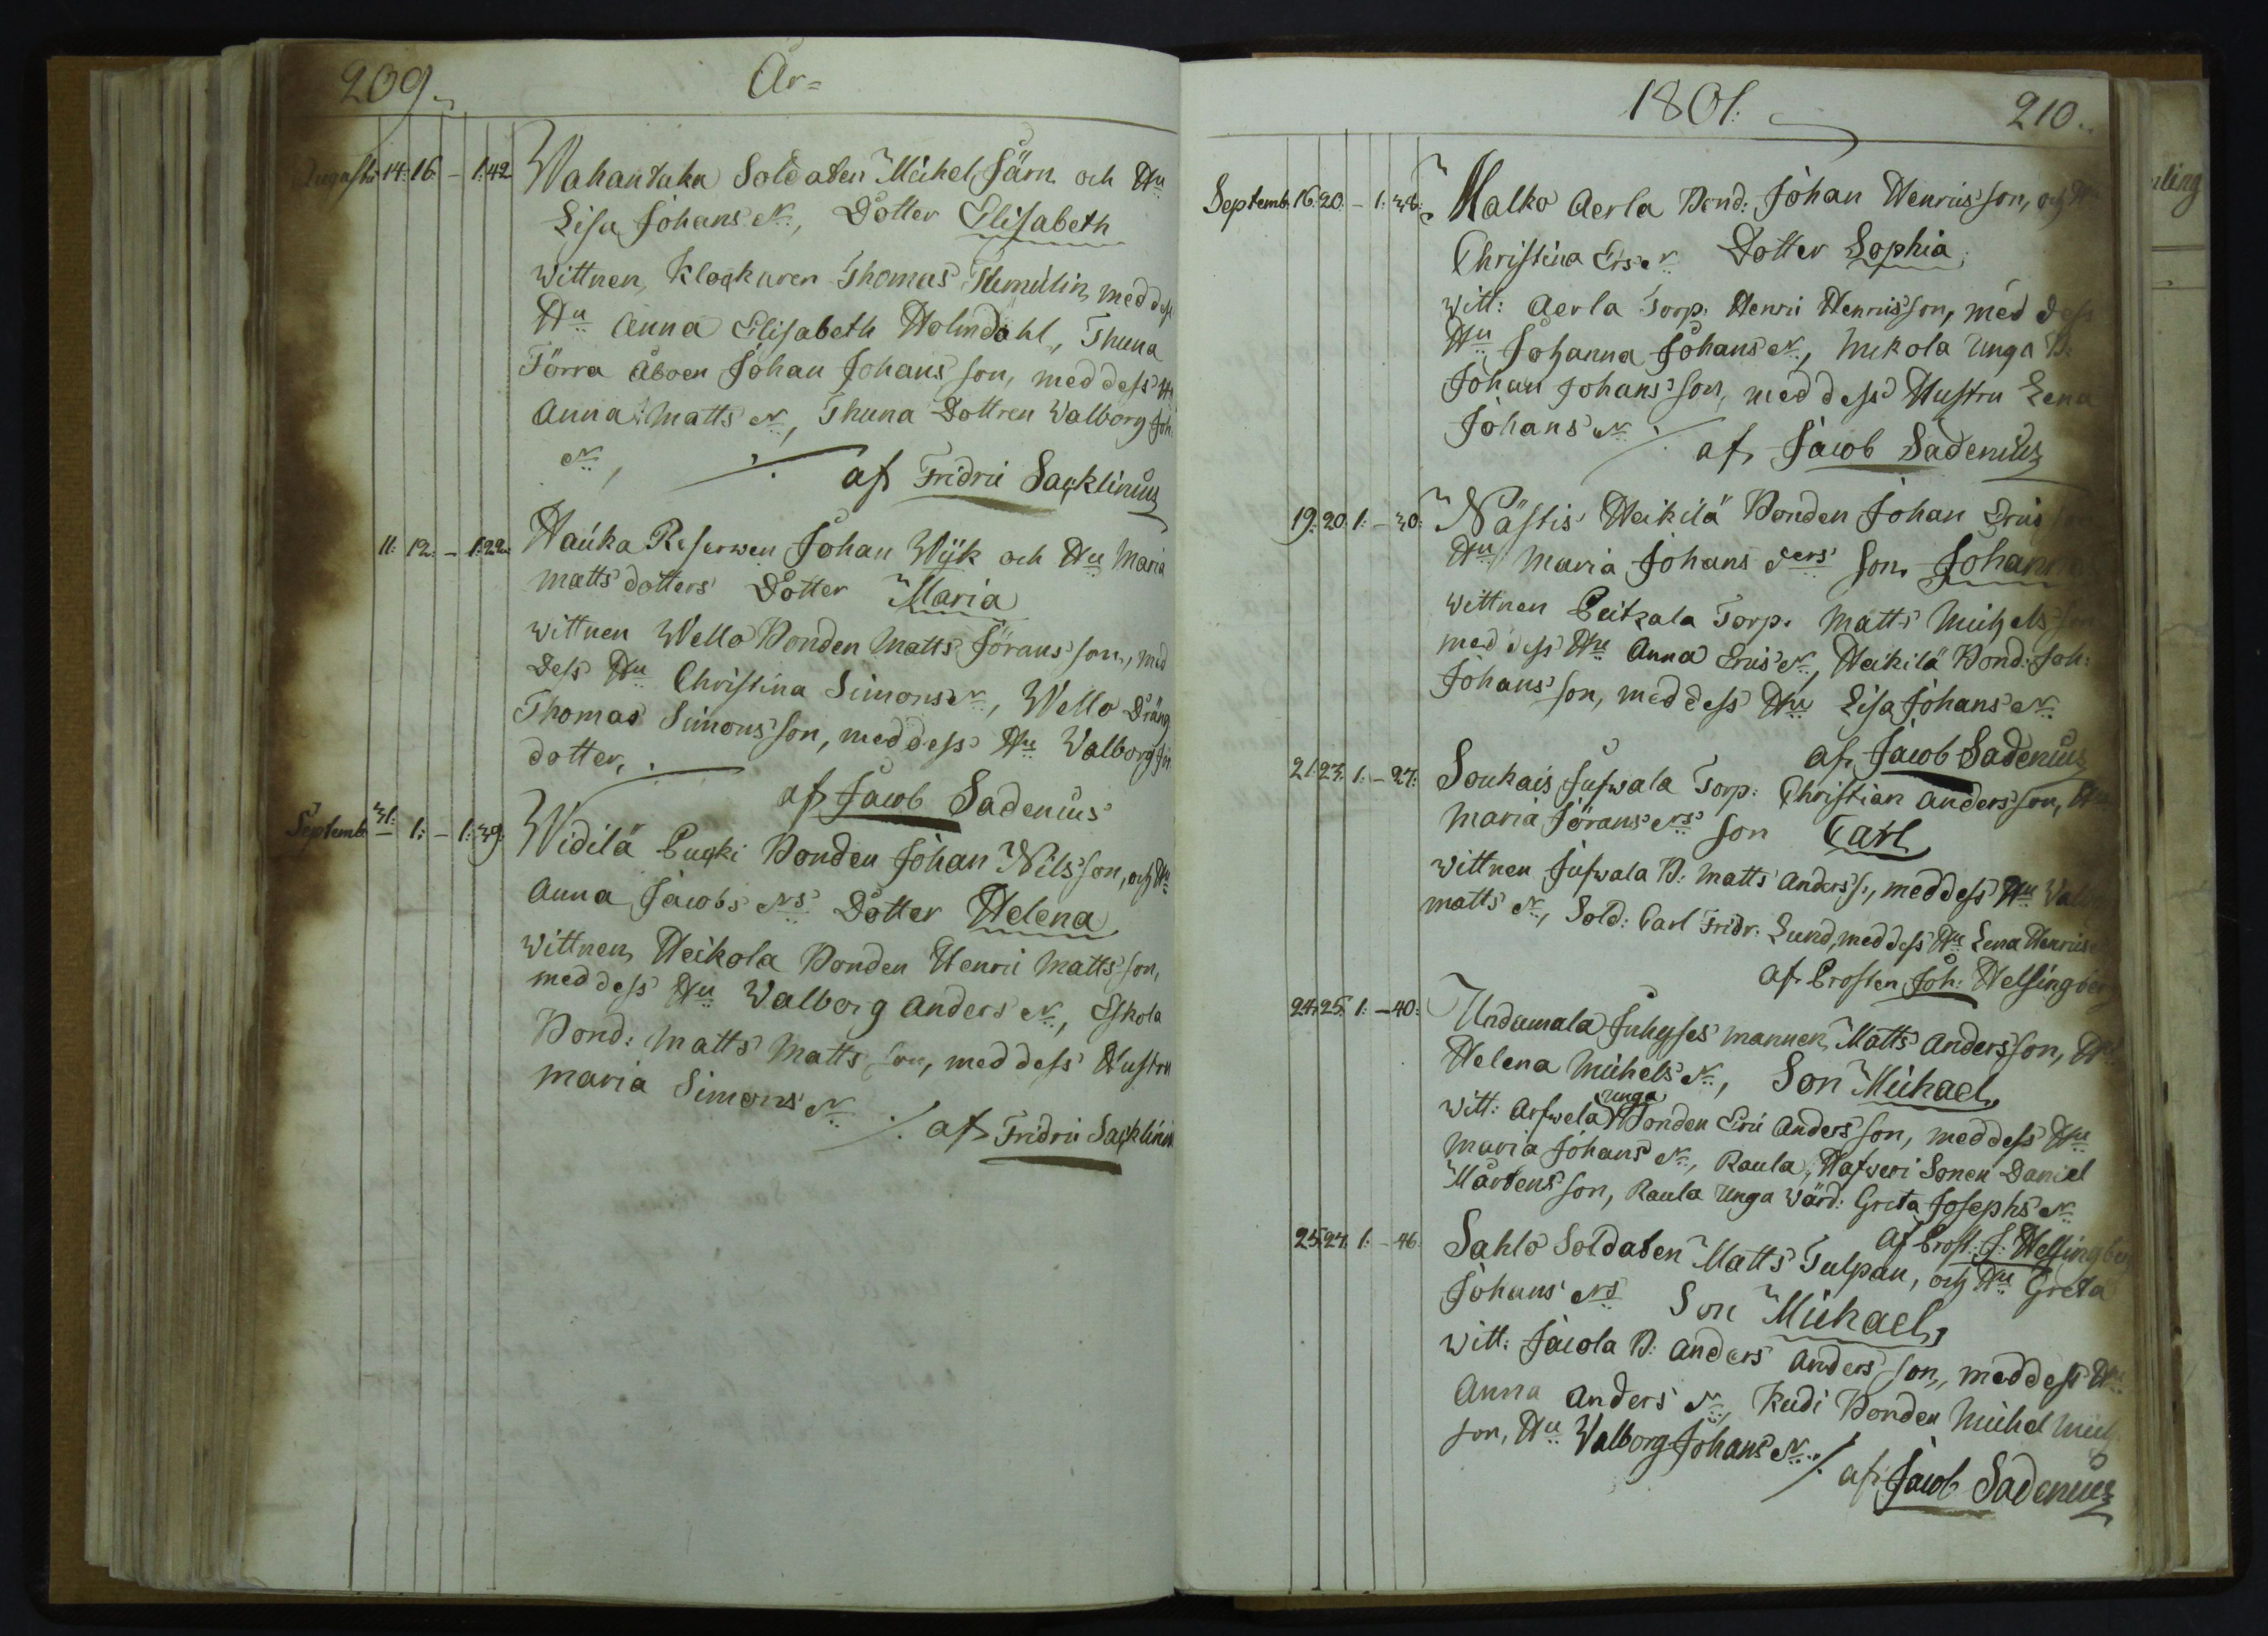 209.
År=
Augusti 14. 16. – 1. 42. Wahantaka Soldaten Michel Järn och Hu
Lisa Johans dr., Dotter Elisabeth
wittnen, Klockaren Thomas Tumulin, med dess
Hu Anna Elisabeth Holmdahl, Thuna
Törra Åboen Johan Johans son, med dess Hu
Anna Matts dr, Thuna Dottren Walborg Joh.
dr,
af Fridric Sacklinius
11. 12. – 1. 22. Hauka Reserwen Johan Wijk och Hu Maria
Matts dotters Dotter Maria
wittnen Wello Bonden Matts Jörans son, med
dess Hu Christina Simons dr, Wello Dräng
Thomas Simons son, med dess Hu Walborg
dotter,
af Jacob Sadenius
Septemb. 31. 1. – 1. 39. Widilä Pucki Bonden Johan Nils son, och Hu
Anna Jacobs drs Dotter Helena
wittnen, Heikola Bonden Henric Matts son,
med dess Hu Walborg Anders dr, Eskola
Bond: Matts Matts son, med dess Hustru
Maria Simons dr
af Fridric Sacklinius
1801.
210.
Septemb. 16. 20. – 1. 38. Malko Aerla Bond: Johan Henrics son, och Hu
Christina Ers dr Dotter Sophia
witt: Aerla Torp. Henric Henrics son, med dess
Hu Johanna Johans dr, Mikola Unga B:
Johan Johans son, med dess Hustru Lena
Johans dr
af Jacob Sadenius
19. 20. 1. – 30. Nästis Heikilä Bonden Johan Erics
Hu Maria Johans ders son Johan
wittnen Peitzala Torp. Matts Michels son
med dess Hu Anna Erics dr, Heikilä Bond: Joh:
Johans son, med dess Hu Lisa Johans dr
af Jacob Sadenius
21. 23. 1. – 27. Soukais Jufwala Torp: Christian Anders son, Hu
Maria Jörans drs son Carl
wittnen Jufwala B. Matts Anders s., med dess Hu
Matts dr, Sold: Carl Fridr. Lund, med dess Hu Lena Henrics
af Prosten Joh: Helsingberg
24. 25. 1. – 40. Undamala Inhyses mannen Matts Anders son, Hu
Helena Michels dr, Son Michael
unga
witt: Arfwela Bonden Eric Anders son, med dess Hu
Maria Johans dr, Raula, Hafweri Sonen Daniel
Mårtens son, Raula Unga wärd: Greta Josephs dr
af Prost: J: Helsingberg
25. 27. 1. – 46. Sahlo Soldaten Matts Tulpan, och Hu Greta
Johans drs Son Michael
witt: Jacola B. Anders Anders son, med dess Hu
Anna Anders dr, Keidi Bonden Michel Mich.
son, Hu Walborg Johans dr.
af Jacob Sadenius